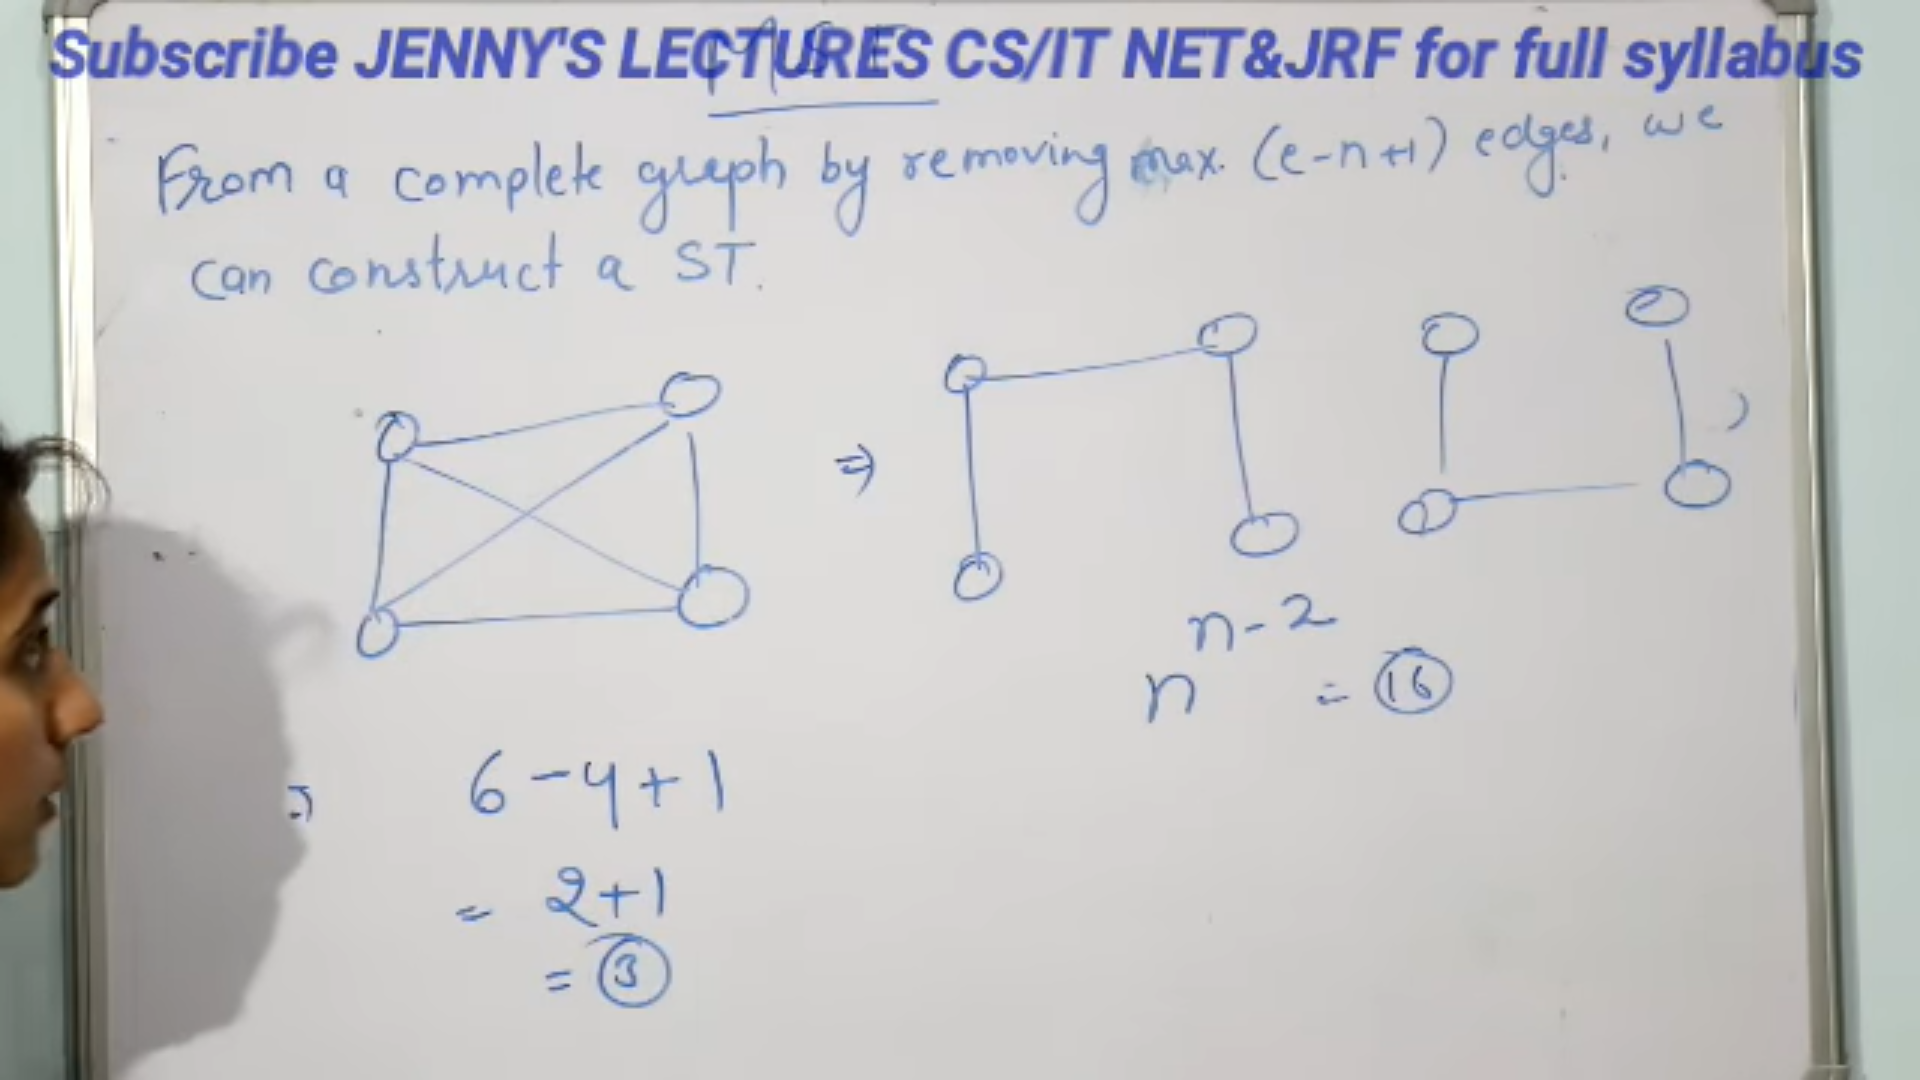 Subscribe JENNY'S LECTURES CS/IT NET&JRF for full syllabus
From a complete graph by removing max. (e-n+1) edges, we
can construct a ST.
⇒
n^{n-2} = 16
6-4+1
= 2+1
= 3